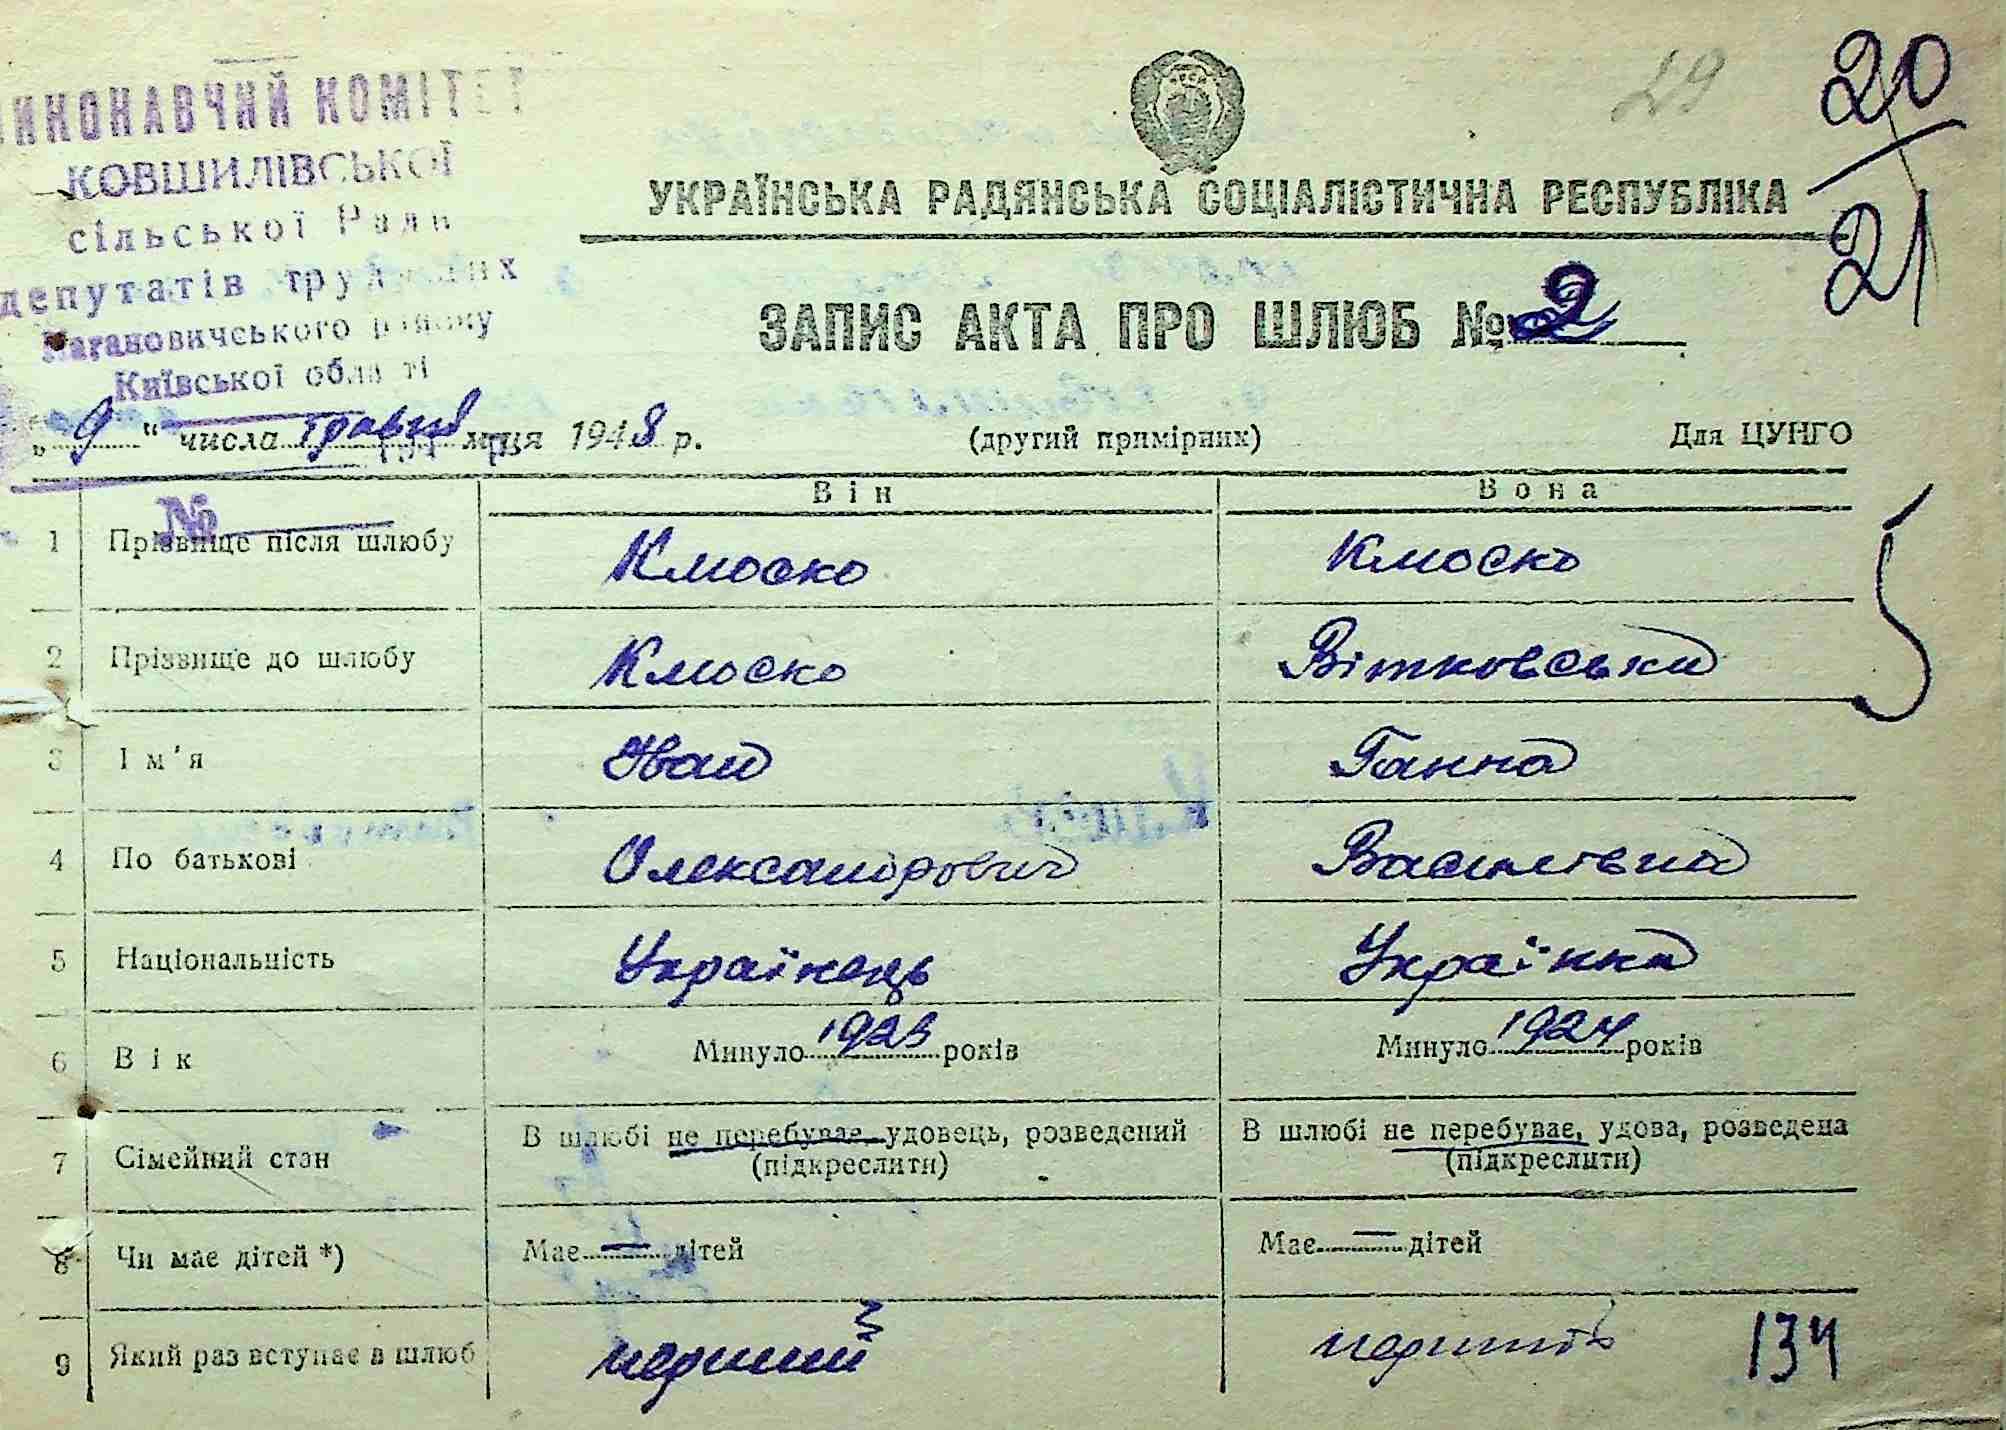 ВИКОНАВЧИЙ КОМІТЕТ
КОВШИЛІВСЬКОЇ
сільської Ради
депутатів трудящих
Кагановичського району
Київської області
№
29
20
21
УКРАЇНСЬКА РАДЯНСЬКА СОЦІАЛІСТИЧНА РЕСПУБЛІКА
ЗАПИС АКТА ПРО ШЛЮБ № 2
„ 9 “ числа травня м-ця 1948 р. (другий примірник) Для ЦУНГО
Він Вона
1 Прізвище після шлюбу Кмоско Кмоско
2 Прізвище до шлюбу Кмоско Вітковська
3 Ім'я Іван Ганна
4 По батькові Олександрович Василівна
5 Національність Українець Українка
6 Вік Минуло 1923 років Минуло 1924 років
7 Сімейний стан В шлюбі не перебуває, удовець, розведений (підкреслити) В шлюбі не перебуває, удова, розведена (підкреслити)
8 Чи має дітей *) Має — дітей Має — дітей
9 Який раз вступає в шлюб перший
134